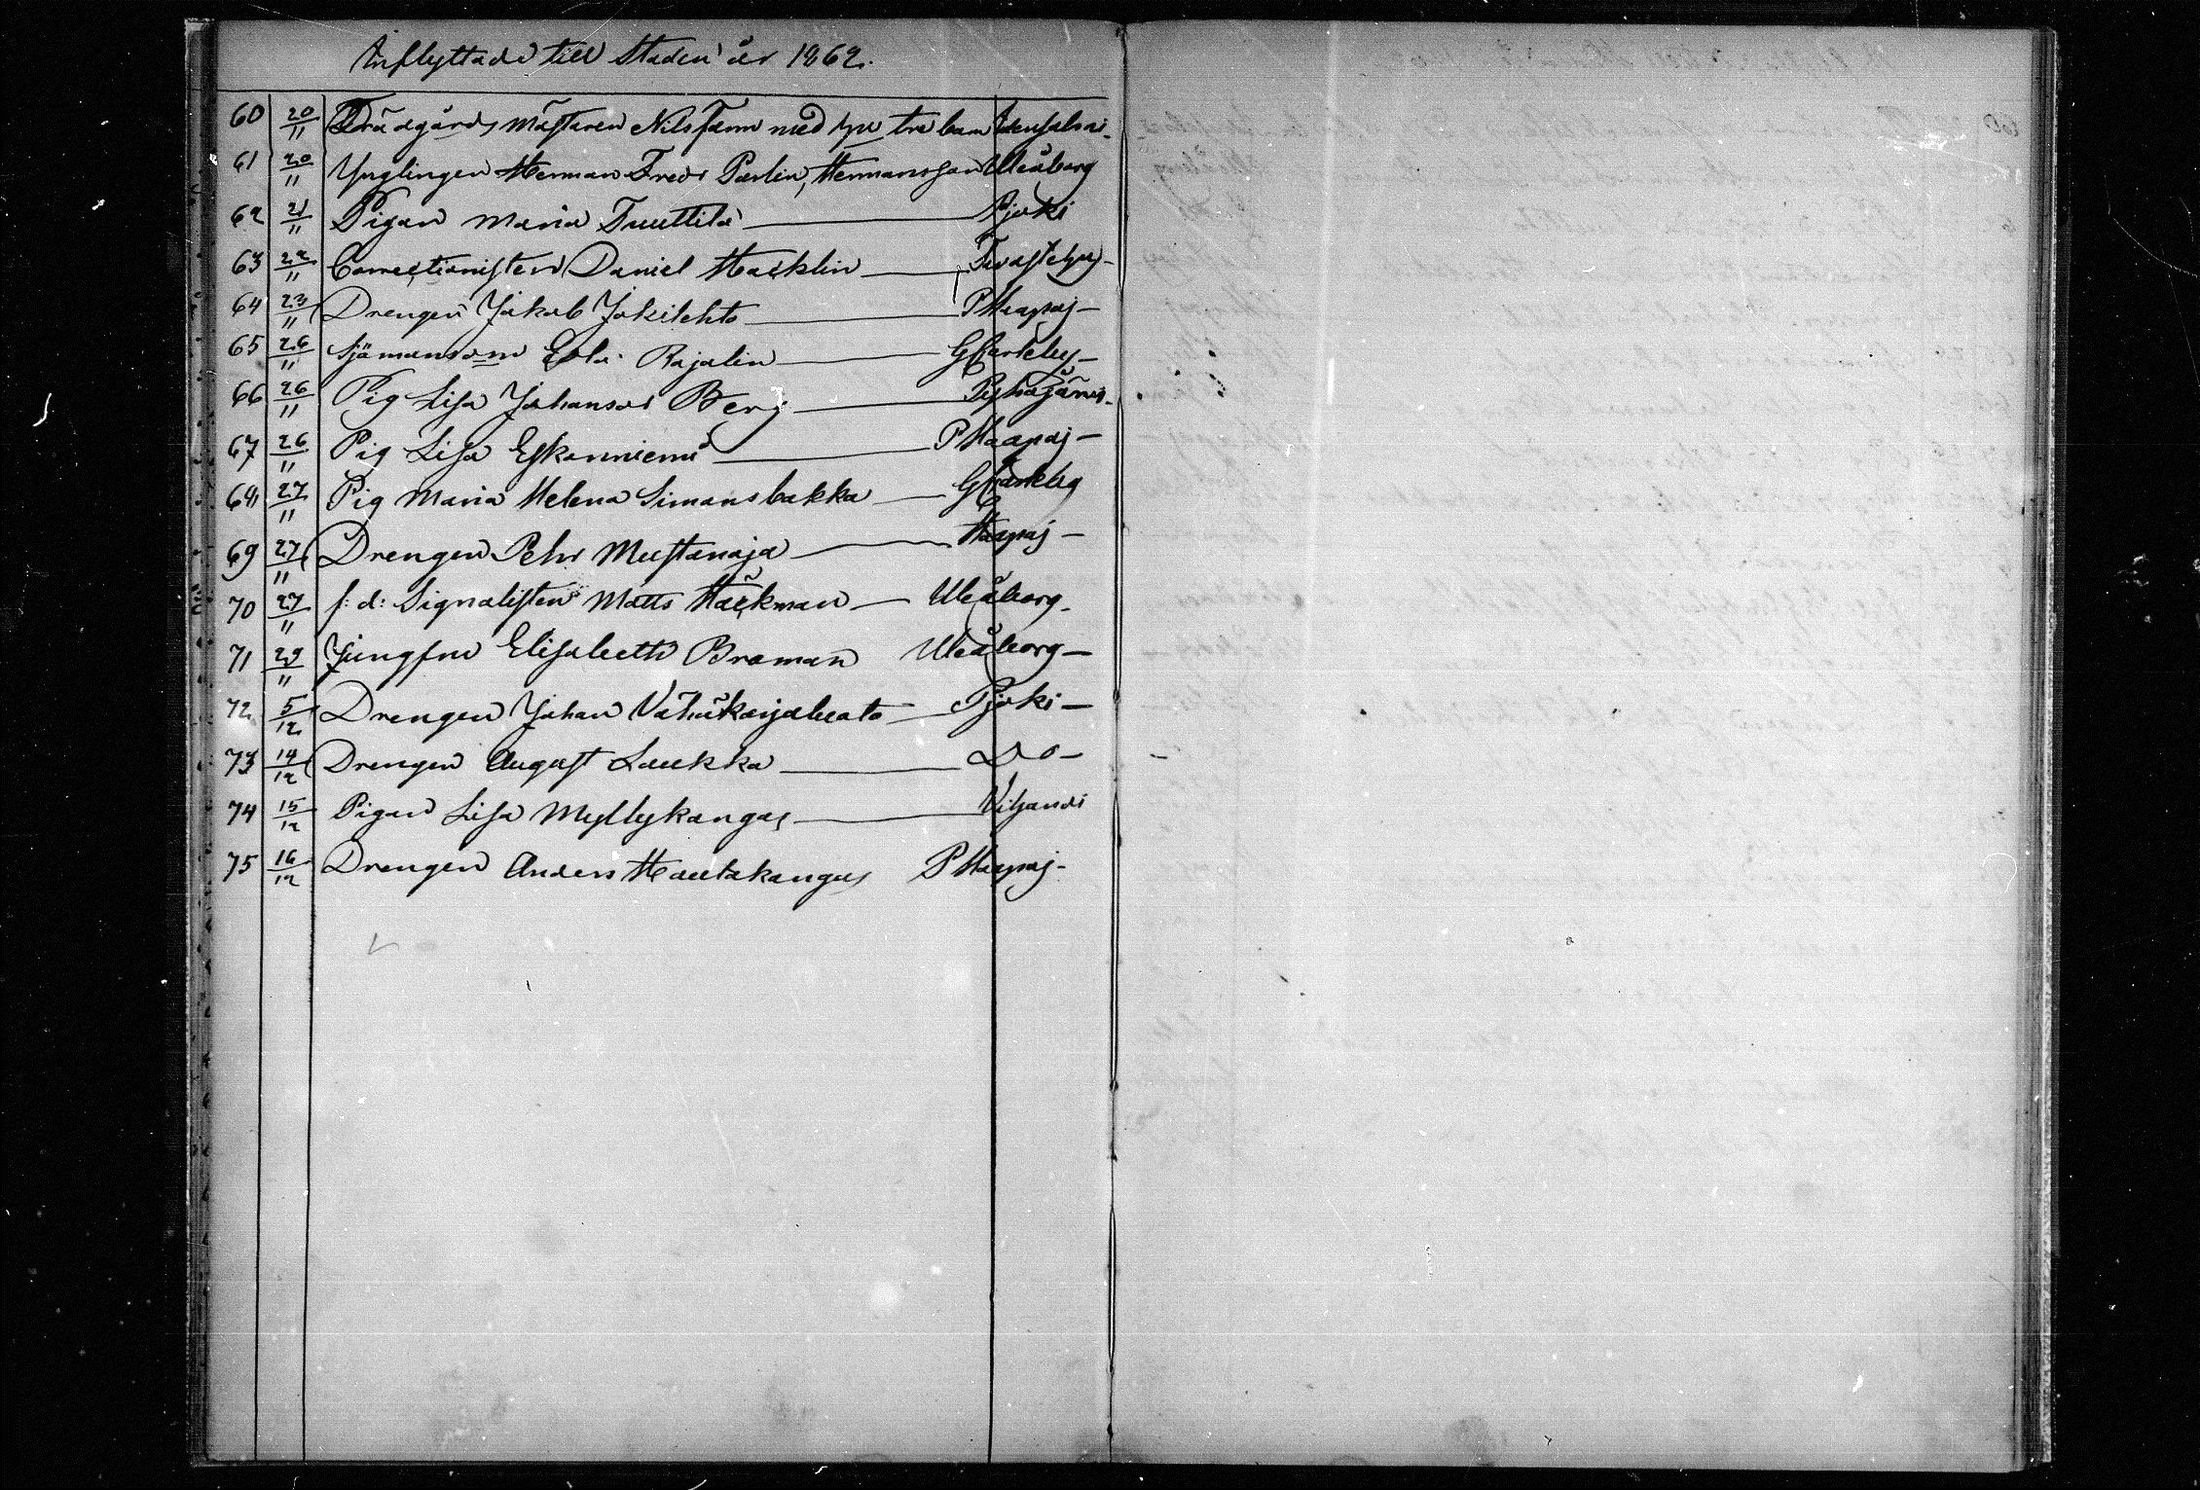 Inflyttade till Staden år 1862.
60 20/11 Trädgårds mästaren Nils Famn med hu tre barn Idensalmi
61 20/11 Ynglingen Herman Fredr Parlin, Hermansson Uleåborg
62 21/11 Pigan Maria Tuuttila Pjoki
63 22/11 Correctionisten Daniel Hacklin Tavastehus
64 23/11 Drengen Jakob Jokilehto PHaapaj
65 26/11 Sjömans Rajalin GCarleby
66 26/11 Pig Lisa Johansdr Berg Pyhäjärvi
67 26/11 Pig Lisa Eskonniemi PHaapaj
68 27/11 Pig Maria Helena Simonsbakka GCarleby
69 27/11 Drengen Pehr Mustanoja Haapaj
70 27/11 f: d: Signalisten Matts Häckman Uleåborg
71 29/11 Jungfru Elisabeth Broman Uleåborg
72 5/12 Drengen Johan Vähäkangas Pjoki
73 14/12 Drengen August Laukka Do
74 15/12 Pigan Lisa Myllykangas Vihandi
75 16/12 Drengen Anders Hautakangas PHaapaj